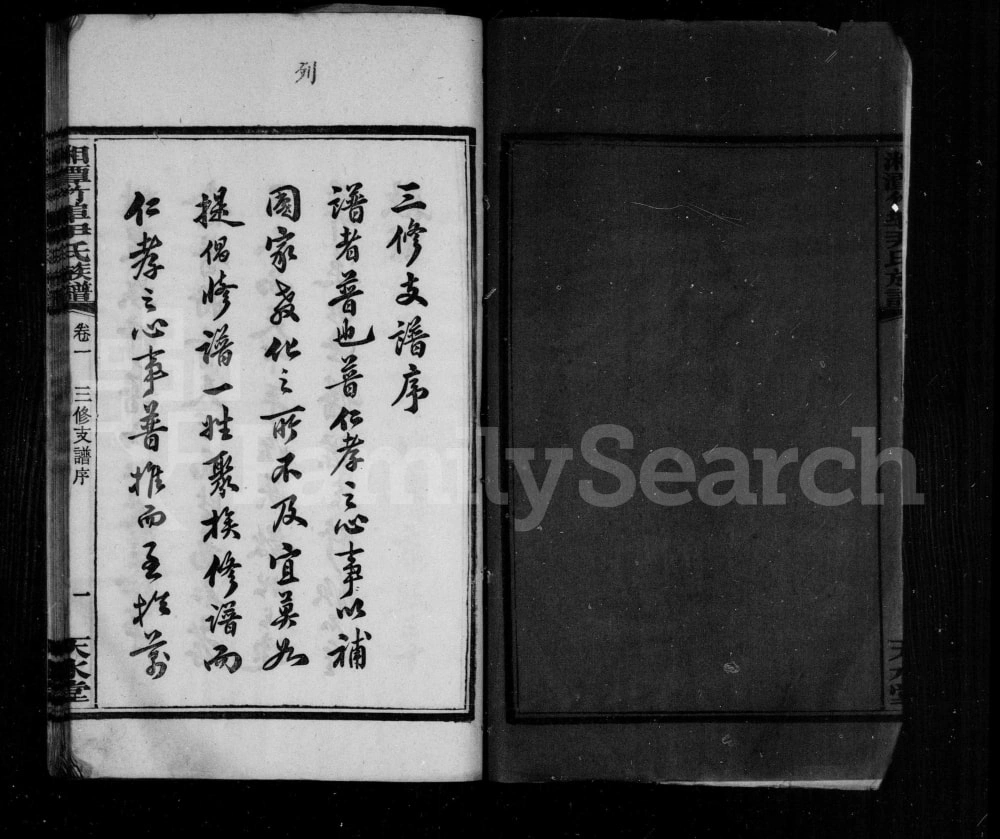 列
三修支譜序
譜者普也普仁孝之心事以補
國家教化之所不及宜莫如
提倡修譜一姓聚族修譜而
仁孝之心事普推而至於万
湘潭 尹氏族譜
卷一
三修支譜序
一
天水堂
FamilySearch